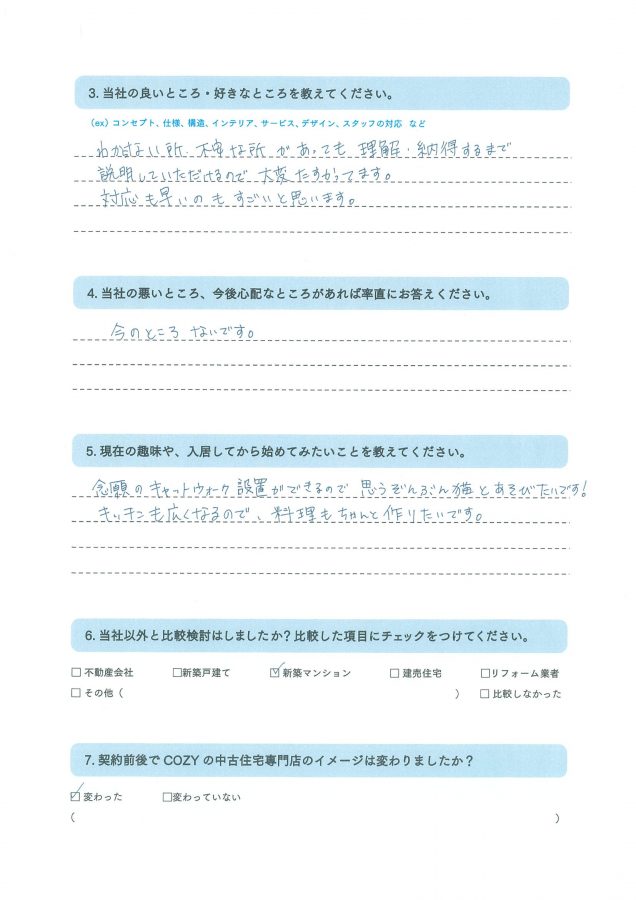 3. 当社の良いところ・好きなところを教えてください。
（ex）コンセプト、仕様、構造、インテリア、サービス、デザイン、スタッフの対応 など
わからない所、不安な所があっても理解・納得するまで
説明していただけるので大変たすかってます。
対応も早いのもすごいと思います。
4. 当社の悪いところ、今後心配なところがあれば率直にお答えください。
今のところ ないです。
5. 現在の趣味や、入居してから始めてみたいことを教えてください。
念願のキャットウォーク設置ができるので思うぞんぶん猫とあそびたいです!
キッチンも広くなるので、料理もちゃんと作りたいです。
6. 当社以外と比較検討はしましたか？比較した項目にチェックをつけてください。
□ 不動産会社 □新築戸建て ☑ 新築マンション □ 建売住宅 □リフォーム業者
□ その他（ ） □ 比較しなかった
7. 契約前後で COZY の中古住宅専門店のイメージは変わりましたか？
☑ 変わった □変わっていない
（ ）